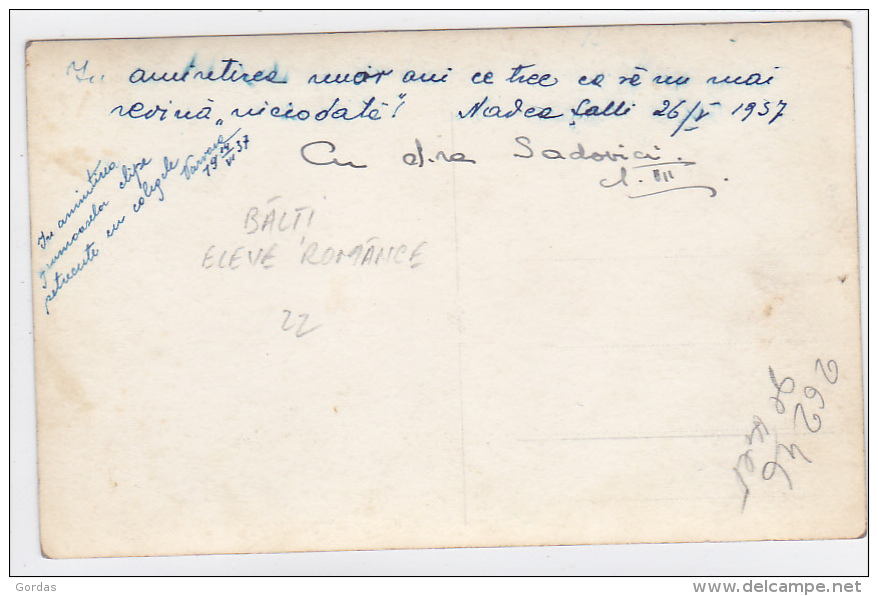 In amintirea unor ani ce trec ca să nu mai
revină „niciodată”! Nadea Salli 26/V 1937
Cu d-ra Sadovici.
cl. VIII.
In amintirea
frumoaselor clipe
petrecute cu colegele
19 37
BĂLȚI
ELEVE ROMÂNCE
22
Gordas
www.delcampe.net